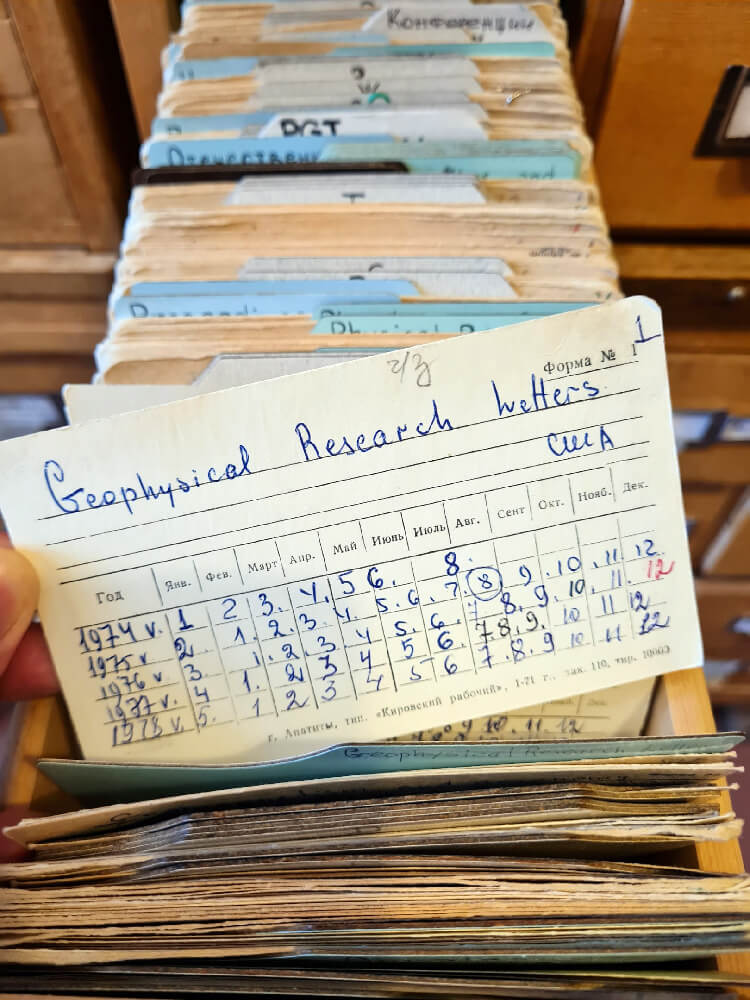 Конференции
PGT
Отечествен
Physical
ч/з
Форма № 1
1
Geophysical Research Letters
США
Год Янв. Фев. Март Апр. Май Июнь Июль Авг. Сент Окт. Нояб. Дек.
1974 v. 1 2 3. 4. 5 6. 8.
1975 v 2 1. 2. 3. 4. 5. 6. 7. 8 9 10. 11. 12.
1976 v. 3. 1. 2. 3 4 5. 6. 7 8. 9. 10. 11. 12
1977 v. 4 1. 2 3 4 5 6. 7. 8. 9. 10 11 12
1978 v. 5. 1 2 3 4 5 6 7. 8. 9 10 11 12
г. Апатиты, тип. «Кировский рабочий», 1-71 г., зак. 110, тир. 10000
10. 11. 12
Geophysical Research